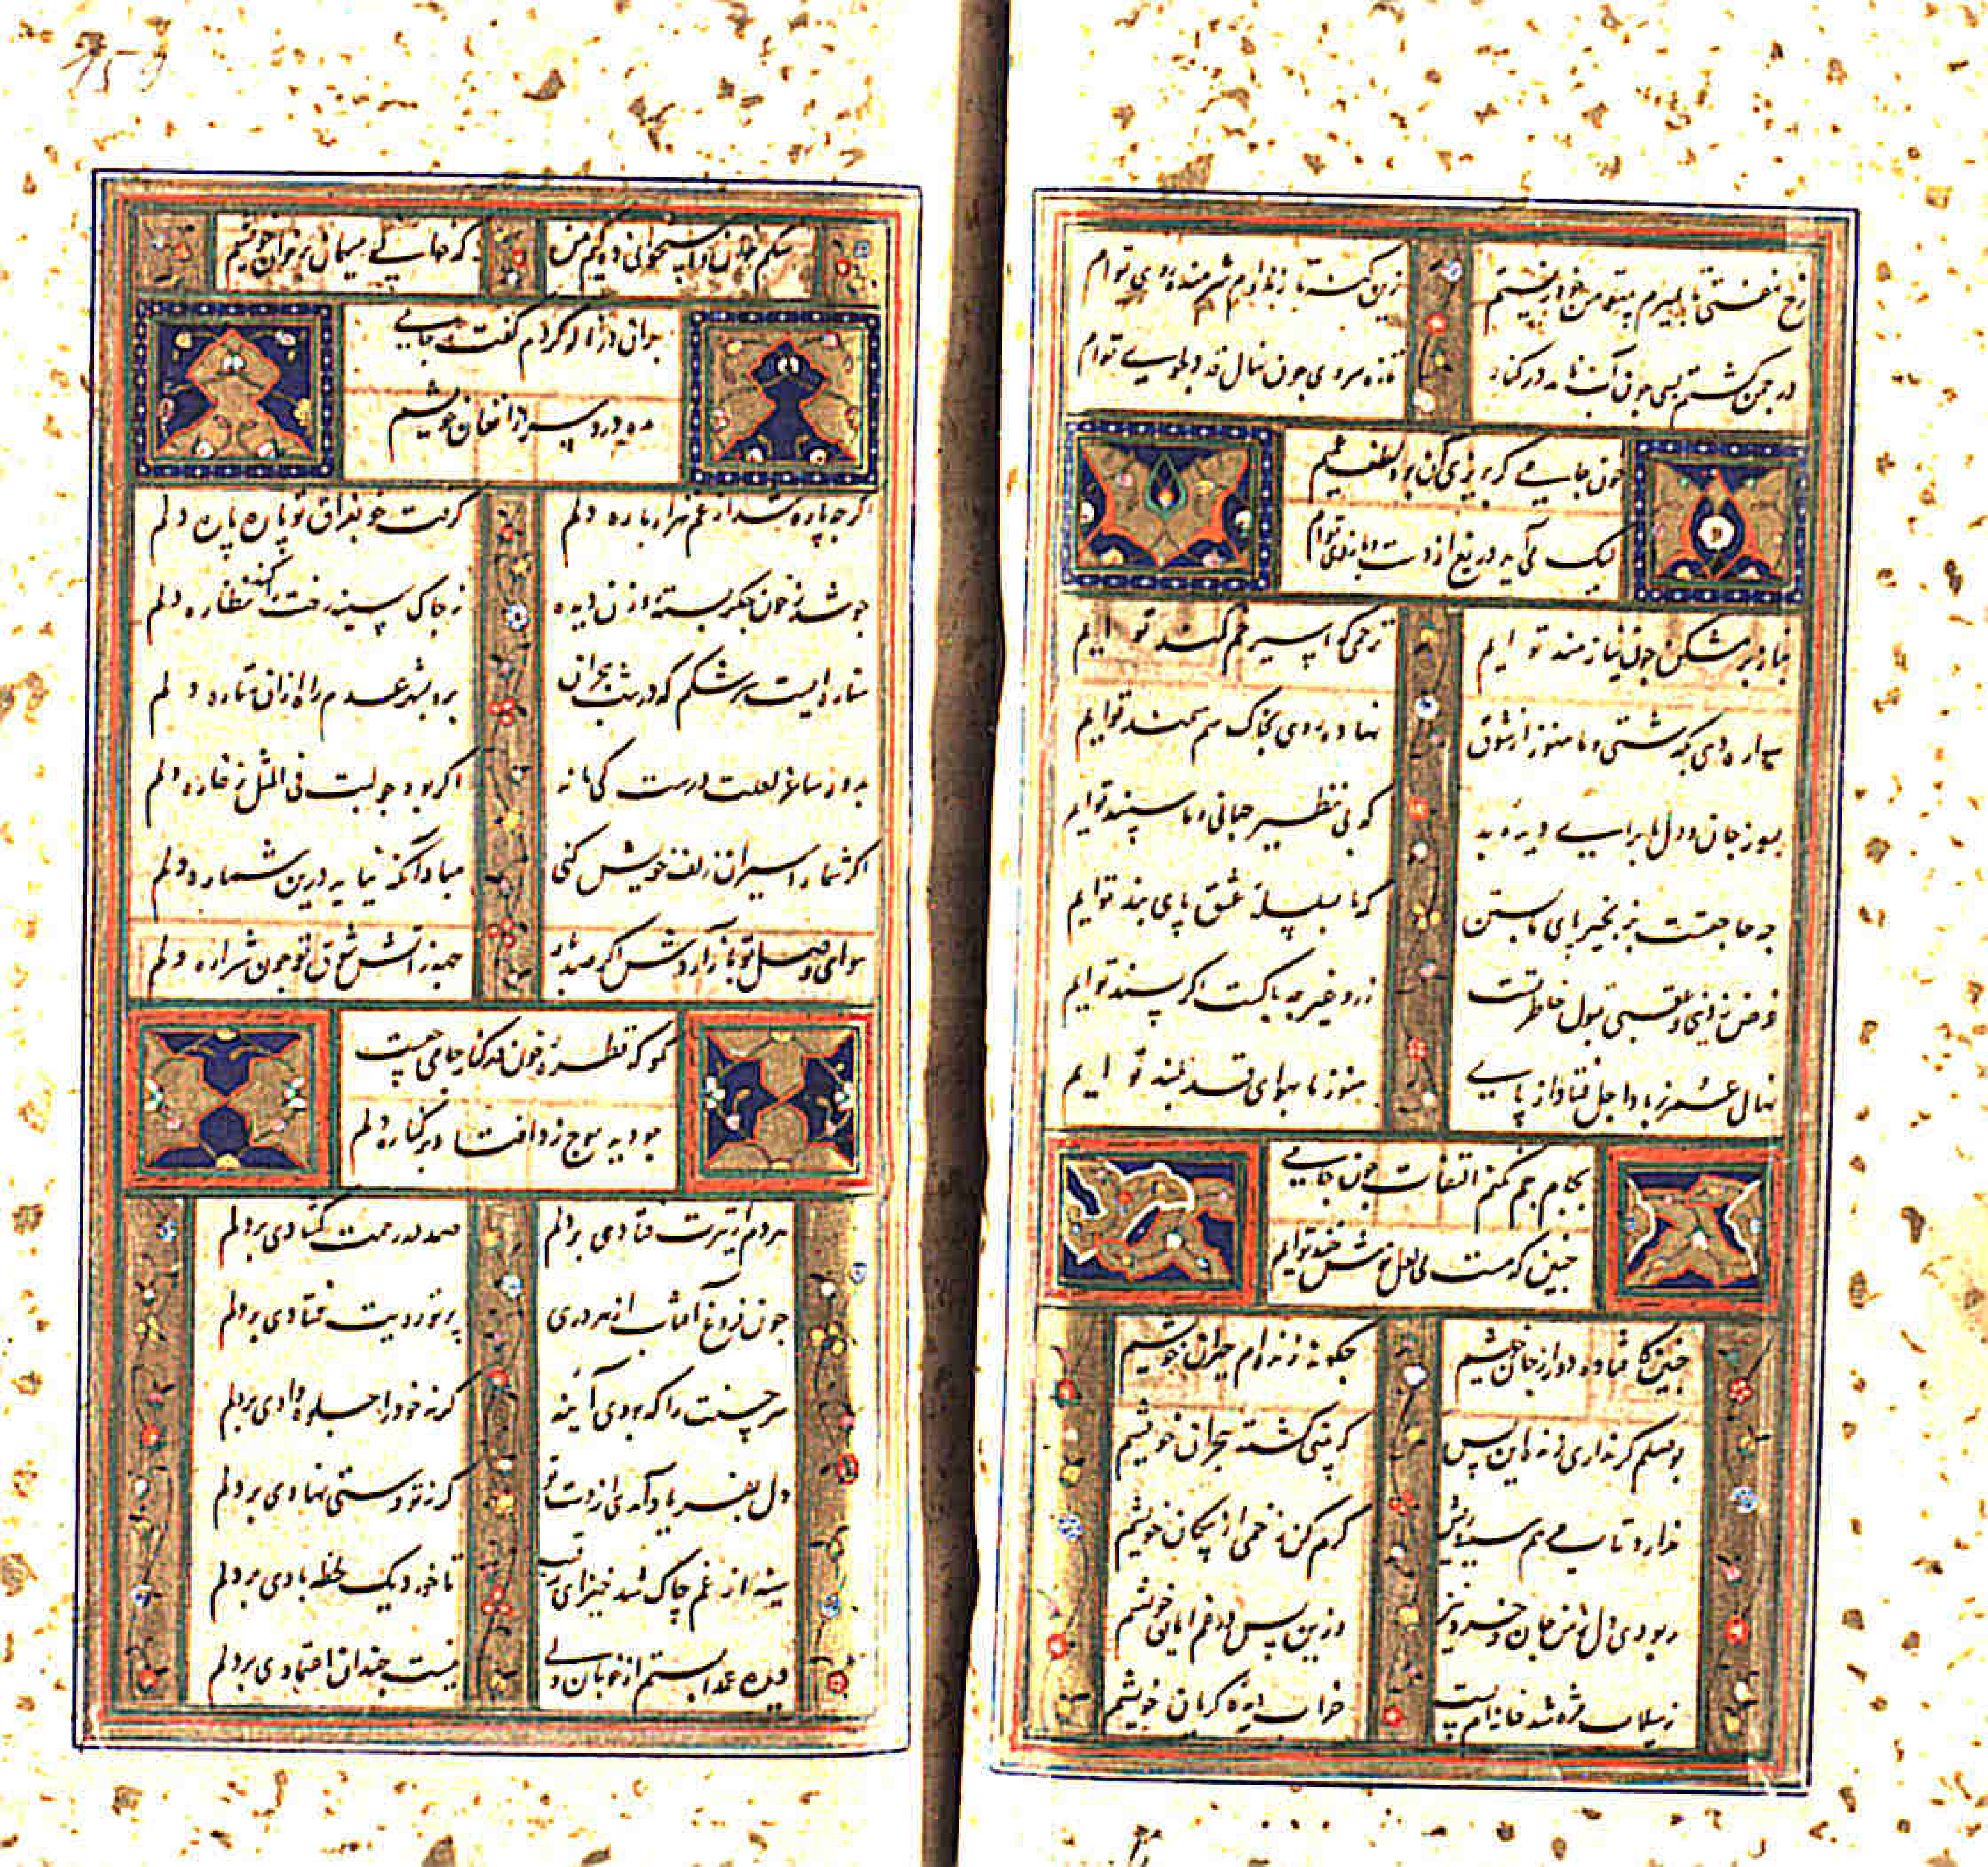 رخ نهفتی تا بمیرم بیتو من خود زیستم زین گنه تا زنده‌ام شرمنده روی توام
در چمن گشتم بسی چون آب نامد در کنار تازه سروی چون نهال قد دلجوی توام
خون جامی گر بریزی آن بود لطف عمیم
لیک می آید دریغ از دست و بازوی توام
بناز برمشکن چون نیازمند تو ایم ترحمی کن اسیر خم کمند تو ایم
سواره دی بگذشتی و ما هنوز از شوق نهاده روی بخاک سم سمند توایم
بسوز جان و دل ما برای دیده بد که بی نظیر جهانی و ما سپند توایم
چه حاجتست بزنجیر پای ما بستن که ما بسلسله عشق پای بند توایم
غرض ز دینی و عقبی قبول خاطر تست ز رد غیر چه باکست اگر پسند توایم
نهال عمر ز باد اجل فتاد از پای هنوز ما بهوای قد بلند تو ایم
بجام جم نکنم التفات چون جامی
چنین که مست می لعل نوش خند توایم
چنین کافتاده دور از جان خویشم چگونه زنده‌ام حیران خویشم
بوصلم گر نداری زنده زین پس که بینی کشته هجران خویشم
ندارد تاب مرهم سینه ریش کرم کن زخمی از پیکان خویشم
ربودی دل ز من جان و خرد نیز وزین پس در غم ایمان خویشم
ز سیلاب مژه شد خانه‌ام پست خراب دیده گریان خویشم
سگم خوان و استخوانی ده کیم من که خواهی میهمان بر خوان خویشم
بران در زار کردم گفت جامی
مده درد سر از افغان خویشم
اگر چه پاره شد از غم هزار باره دلم گرفت خو بفراق تو پاره پاره دلم
چو شد ز خون جگر بسته روزن دیده ز چاک سینه رخت را کند نظاره دلم
ستاره ایست سرشکم که در شب هجران برد بشهر عدم راه ازان ستاره دلم
بدور ساغر لعلت درست کی ماند اگر بود چو لبت فی المثل ز خاره دلم
اگر شمار اسیران زلف خویش کنی مباد آنکه نیاید درین شماره دلم
هوای وصل تو باز آردش اگر صد بار جهد ز آتش شوق تو چون شراره دلم
مگو که قطره خون در کنار جامی چیست
چو دیده موج زد افتاد بر کناره دلم
هر دم از تیرت فتادی بر دلم صد در رحمت گشادی بر دلم
چون فروغ آفتاب از هر دری پرتو رویت فتادی بر دلم
سر حسنت را که بودی آینه گر نه خود را جلوه دادی بر دلم
دل بفریاد آمدی از دست تو گر نه تو دستی نهادی بر دلم
سینه از غم چاک شد خیز ای رقیب تا خورد یک لحظه بادی بر دلم
دیده عمدا بستم از خوبان ولی نیست چندان اعتمادی بر دلم